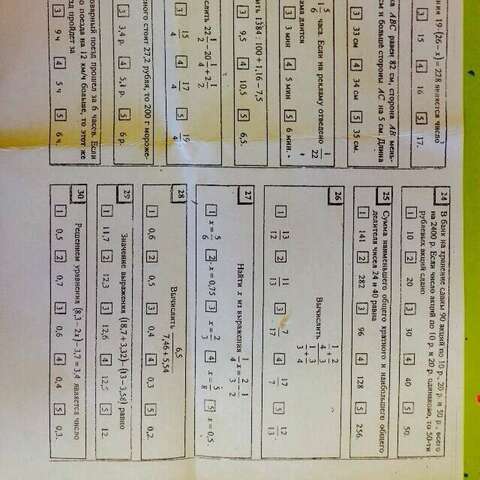 ения 19·(26 – x) = 228 является число
3 15 4 16 5 17.
ка ABC равен 82 см, сторона AB мень-
см и больше стороны AC на 5 см. Длина
3 33 см 4 34 см 5 35 см.
5/6 часа. Если на рекламу отведено 1/22
ама длится
3 3 мин 4 5 мин 5 6 мин.
ить 1384 : 100 + 1,16 – 7,5
3 9,5 4 10,5 5 6,5.
слить
3 15/4 4 17/4 5 19/4
сного стоит 27,2 рубля, то 200 г мороже-
3 3,4 р. 4 5,1 р. 5 6 р.
оварный поезд прошел за 6 часов. Если
о поезда на 12 км/ч больше, то этот же
д пройдет за
3 9 ч 4 5 ч 5 6 ч.
24 В банк на хранение сданы 90 акций по 10 р., 20 р. и 50 р., всего
на 2400 р. Если число акций по 10 р. и 20 р. одинаково, то 50-ти
рублевых акций сдано
1 10 2 20 3 30 4 40 5 50.
25 Сумма наименьшего общего кратного и наибольшего общего
делителя чисел 24 и 40 равна
1 141 2 282 3 96 4 128 5 256.
26 Вычислить
1 13/12 2 11/13 3 7/17 4 17/7 5 12/13
27 Найти x из выражения
1 x = 5/6 2 x = 0,75 3 x = 2/3 4 x = 5/8 5 x = 0,5
28 Вычислить 6,5/(7,46+3,54)
1 0,6 2 0,5 3 0,4 4 0,3 5 0,2.
29 Значение выражения (18,7 + 3,32) – (13 – 3,58) равно
1 11,7 2 12,3 3 12,6 4 12,5 5 12.
30 Решением уравнения (8,3 – 2x) – 3,7 = 3,4 является число
1 0,5 2 0,7 3 0,6 4 0,4 5 0,3.